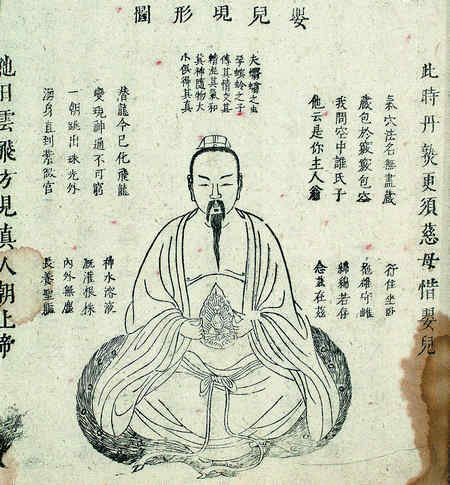 嬰兒現形圖
此時丹熟更須慈母惜嬰兒
氣穴法名無盡藏
藏包於竅竅包空
我問空中誰氏子
他云是你主人翁
行住坐臥
抱雄守雌
綿綿若存
念茲在茲
夫蠮螉之虫
孕螟蛉之子
傳其情交其
精混其氣和
其神隨物大
小俱得其真
潛龍今已化飛龍
變現神通不可窮
一朝跳出珠光外
渾身直到紫微宮
神水溶液
溉灌根株
內外無塵
長養聖軀
他日雲飛方見真人朝上帝